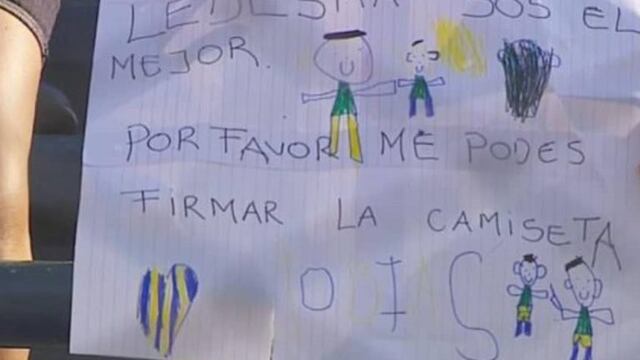 LEDESMA SOS EL
MEJOR.
POR FAVOR ME PODES
FIRMAR LA CAMISETA
TOBIAS